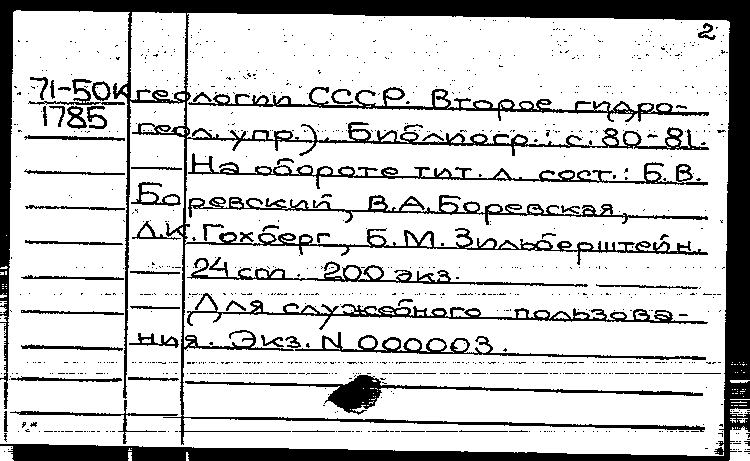 2
71-50к геологии СССР. Второе гидро-
1785 геол. упр.). Библиогр.: с. 80-81.
На обороте тит. л. сост.: Б.В.
Боревский, В.А. Боревская,
Л.К. Гохберг, Б.М. Зильберштейн.
24 см. 200 экз.
Для служебного пользова-
ния. Экз. N 000003.